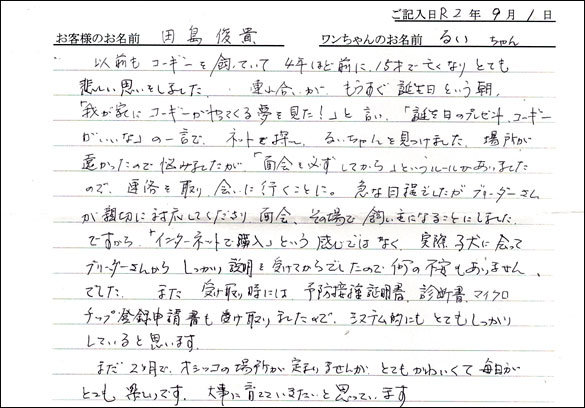 ご記入日R2年9月1日
お客様のお名前 田島俊貴 ワンちゃんのお名前 るい ちゃん
以前も コーギーを飼っていて 4年ほど前に、15才で亡くなり とても
悲しい思いをしました。 連れ合いが、もうすぐ誕生日という朝、
「我が家にコーギーがやってくる夢を見た!」と言い、「誕生日のプレゼント、コーギー
がいいな」の一言で、ネットで探し、るいちゃんを見つけました。場所が
遠かったので悩みましたが、「面会を必ずしてから」というルールがありました
ので、連絡を取り、会いに行くことに。急な日程でしたがブリーダーさん
が親切に対応してくださり面会、その場で飼い主になることにしました。
ですから、「インターネットで購入」という感じではなく、実際子犬に会って
ブリーダーさんから しっかり説明を受けてからでしたので何の不安もありません
でした。 また 受け取り時には、予防接種証明書、診断書、マイクロ
チップ登録申請書も受け取りましたので、システム的にも とてもしっかり
していると思います。
まだ2ヶ月で、オシッコの場所が定まりませんが、とてもかわいくて毎日が
とても楽しいです。大事に育てていきたいと思っています